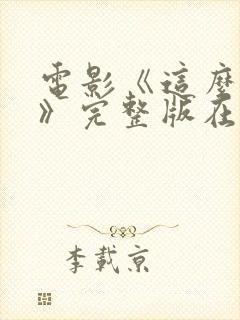 電影《這麼
》完整版在
李載京